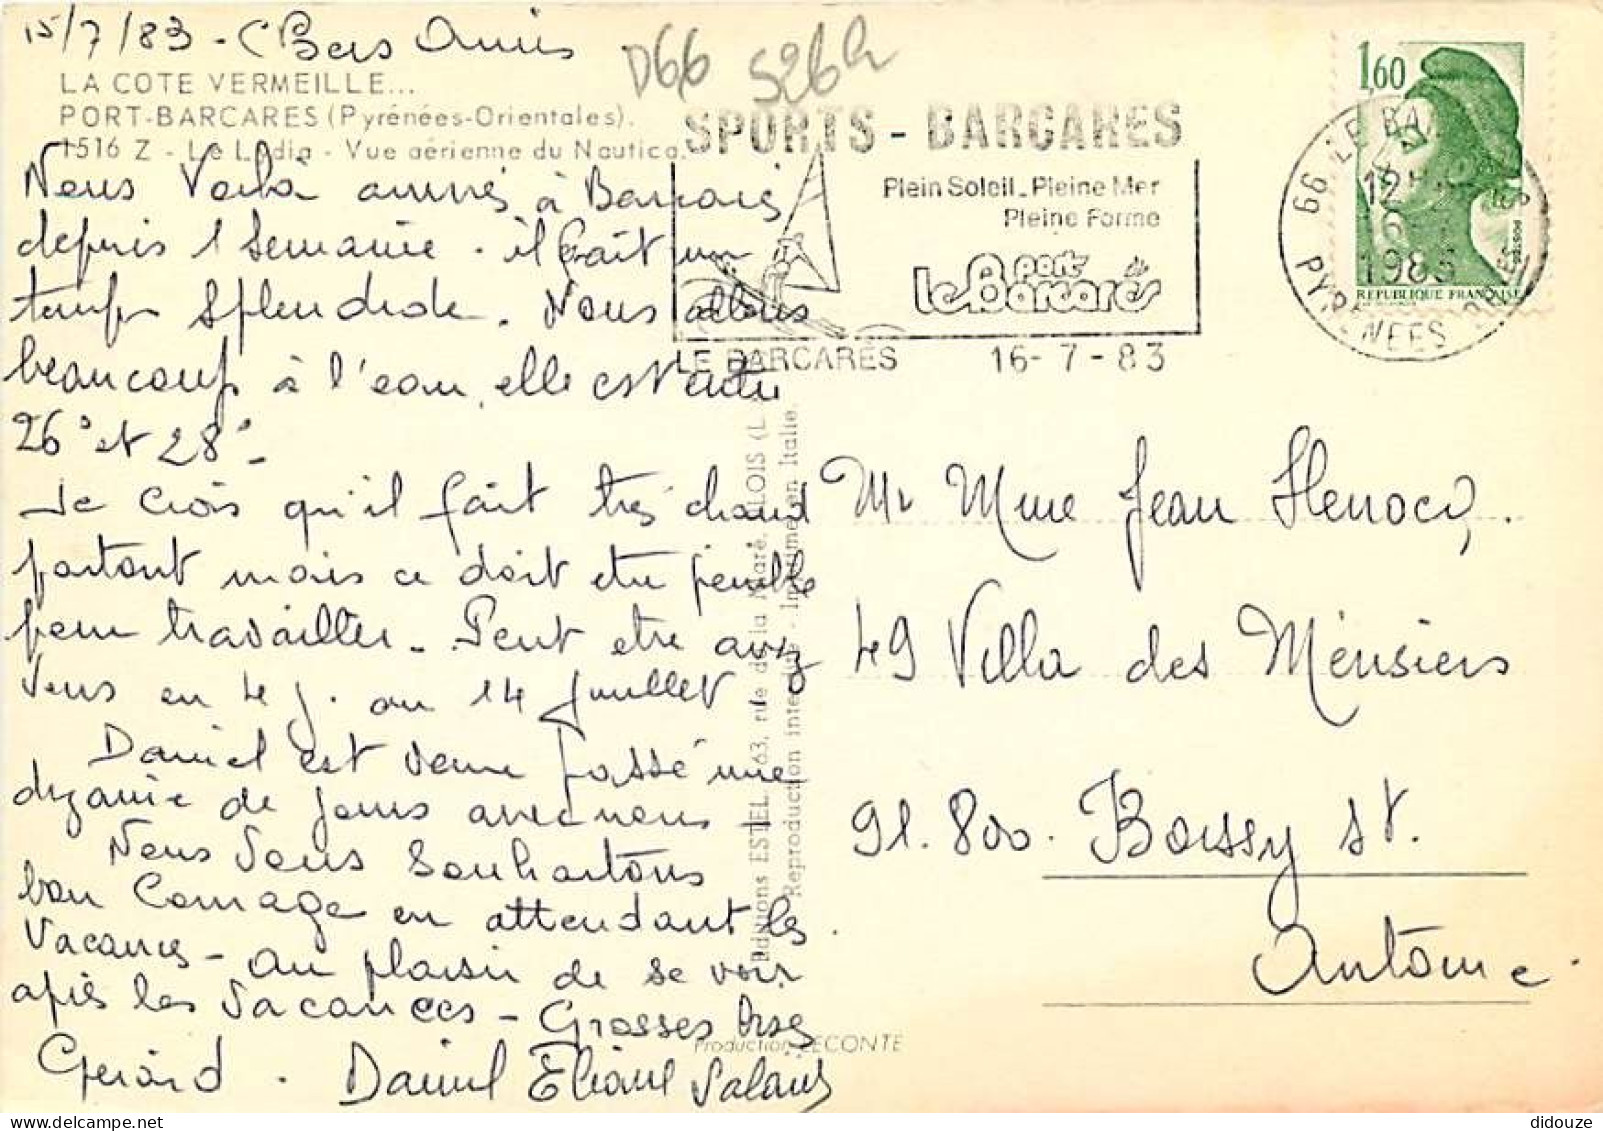 15/7/83 - Chers Amis
D66 526h
LA COTE VERMEILLE...
PORT-BARCARES (Pyrénées-Orientales).
1516 Z - Le Lydia - Vue aérienne du Nautica.
Nous Voilà arrivés à Barcarès
depuis 1 Semaine . il fait un
temps splendide. Nous allons
beaucoup à l'eau, elle est entre
26° et 28° -
Je crois qu'il fait très chaud
partout mais ce doit etre penible
pour travailler - Peut etre avez
Vous eu 4 j. au 14 juillet
Daniel est venu passé une
dizaine de jours avec nous -
Nous Vous Souhaitons
bon Courage en attendant les
Vacances - au plaisir de se voir
après les Vacances - Grosses Bises
Gérard . Daniel Eliane
SPORTS - BARCARES
Plein Soleil - Pleine Mer
Pleine Forme
port
le Barcarès
LE BARCARÈS 16-7-83
1,60
REPUBLIQUE FRANÇAISE
66 LE BA
12 H
16
1983
PYRENEES
Mr Mme Jean Henocq.
49 Villa des Mérisiers
91.800. Boissy St.
Antoine
Editions ESTEL - 63, rue de la Mare.
Reproduction interdite - Imprimé en Italie.
Production LECONTE
didouze